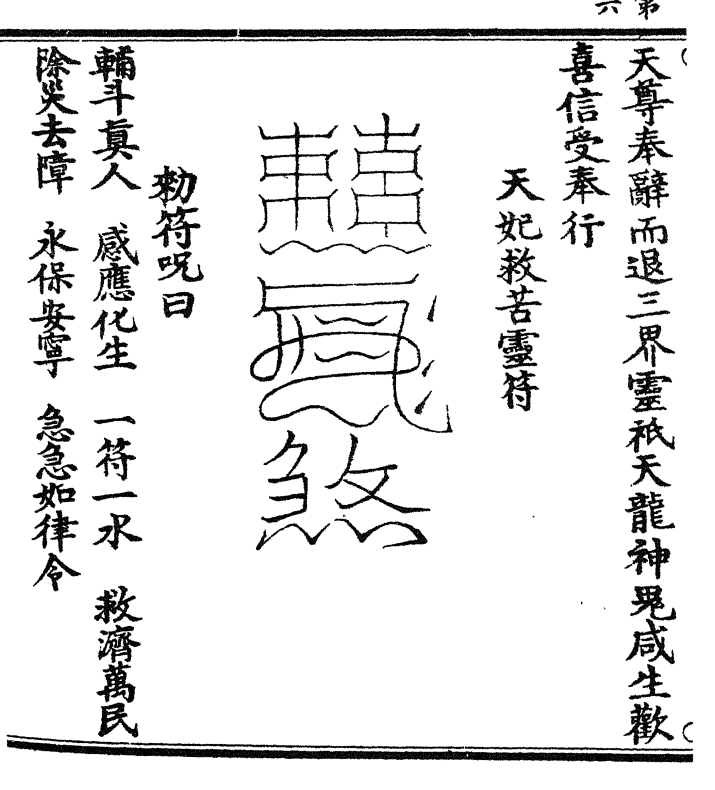 第
六
天尊奉辭而退三界靈祇天龍神鬼咸生歡
喜信受奉行
天妃救苦靈符
勑符呪曰
輔斗真人 感應化生 一符一水 救濟萬民
除災去障 永保安寧 急急如律令